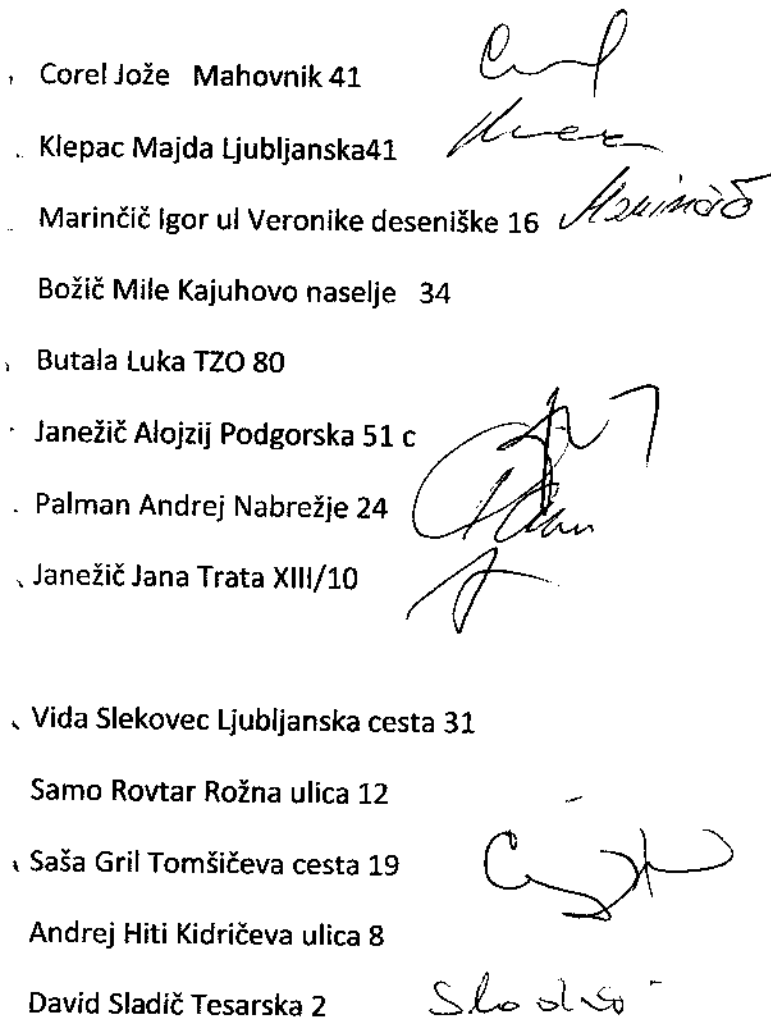 Corel Jože Mahovnik 41
Klepac Majda Ljubljanska41
Marinčič Igor ul Veronike deseniške 16 Marinčič
Božič Mile Kajuhovo naselje 34
Butala Luka TZO 80
Janežič Alojzij Podgorska 51 c
Palman Andrej Nabrežje 24
Janežič Jana Trata XIII/10
Vida Slekovec Ljubljanska cesta 31
Samo Rovtar Rožna ulica 12
Saša Gril Tomšičeva cesta 19
Andrej Hiti Kidričeva ulica 8
David Sladič Tesarska 2 Sladič